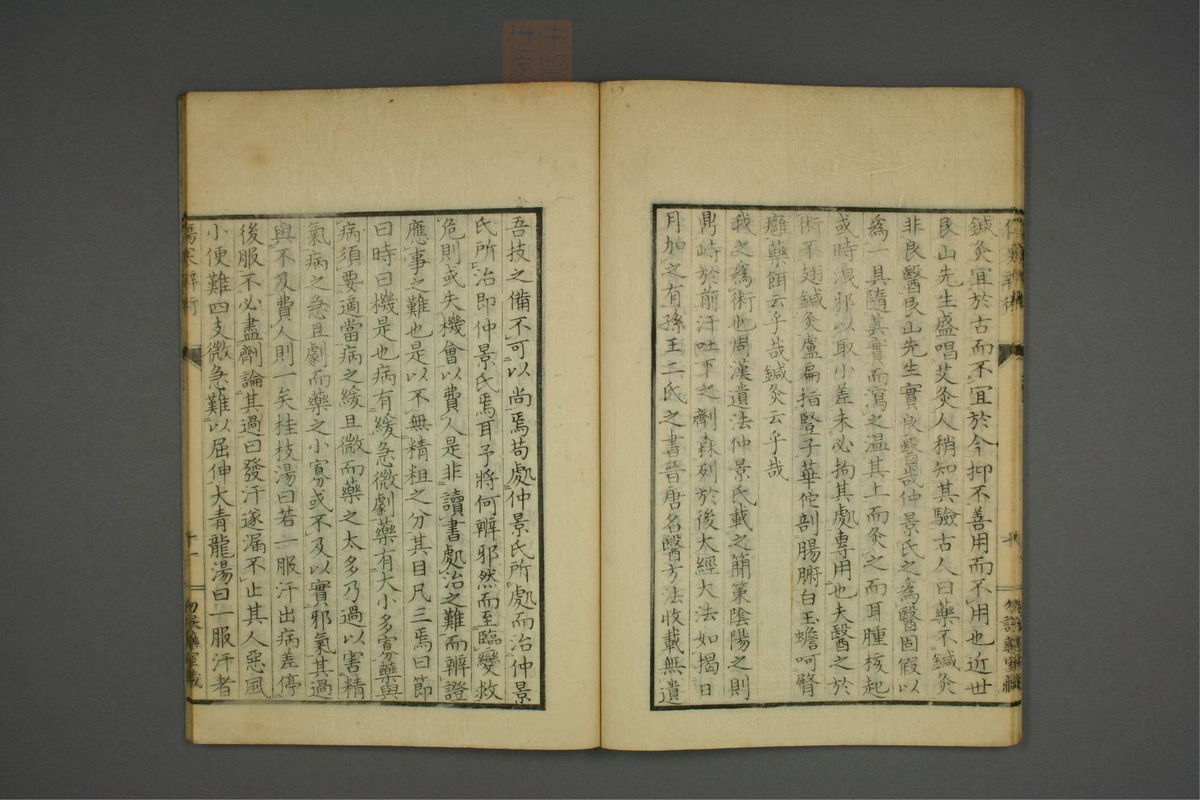 鍼灸宜於古而不宜於今抑不善用而不用也近世
艮山先生盛唱艾灸人稍知其驗古人曰藥不鍼灸
非良醫艮山先生實良醫哉仲景氏之為醫固假以
為一具隨其實而瀉之温其上而灸之而耳腫核起
或時洩邪以取小差未必拘其處專用也夫醫之於
術不翅鍼灸盧扁指豎子華佗剖腸腑白玉蟾呵腎
癰藥餌云乎哉鍼灸云乎哉
我之為術也周漢遺法仲景氏載之簡策陰陽之則
鼎峙於前汗吐下之劑森列於後大經大法如揭日
月加之有孫王二氏之書晉唐名醫方法收載無遺
吾技之備不可以尚焉苟處仲景氏所處而治仲景
氏所治即仲景氏焉耳予將何辨邪然而至臨變救
危則或失機會以費人是非讀書處治之難而辨證
應事之難也是以不無精粗之分其目凡三焉曰節
曰時曰機是也病有緩急微劇藥有大小多寡藥與
病須要適當病之緩且微而藥之太多乃過以害精
氣病之急且劇而藥之小寡或不及以實邪氣其過
與不及費人則一矣桂枝湯曰若一服汗出病差停
後服不必盡劑論其過曰發汗遂漏不止其人惡風
小便難四支微急難以屈伸大青龍湯曰一服汗者
傷寒辨術